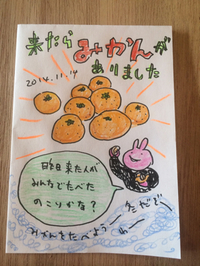 来たら
みかんが
ありました
2014.11.14
昨日来た人が
みんなでたべた
のこりかな?
みかんをたべよう